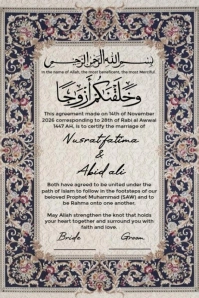 بسم الله الرحمن الرحيم
In the name of Allah, the most beneficent, the most Merciful
وخلقنكم أزوجا
This agreement made on 14th of November
2026 corresponding to 28th of Rabi al Awwal
1447 AH, is to certify the marriage of
Nusrat fatima
&
Abid ali
Both have agreed to be united under the
path of Islam to follow in the footsteps of our
beloved Prophet Muhammad (SAW) and to
be Rahma onto one another.
May Allah strengthen the knot that holds
your heart together and surround you with
faith and love.
Bride Groom